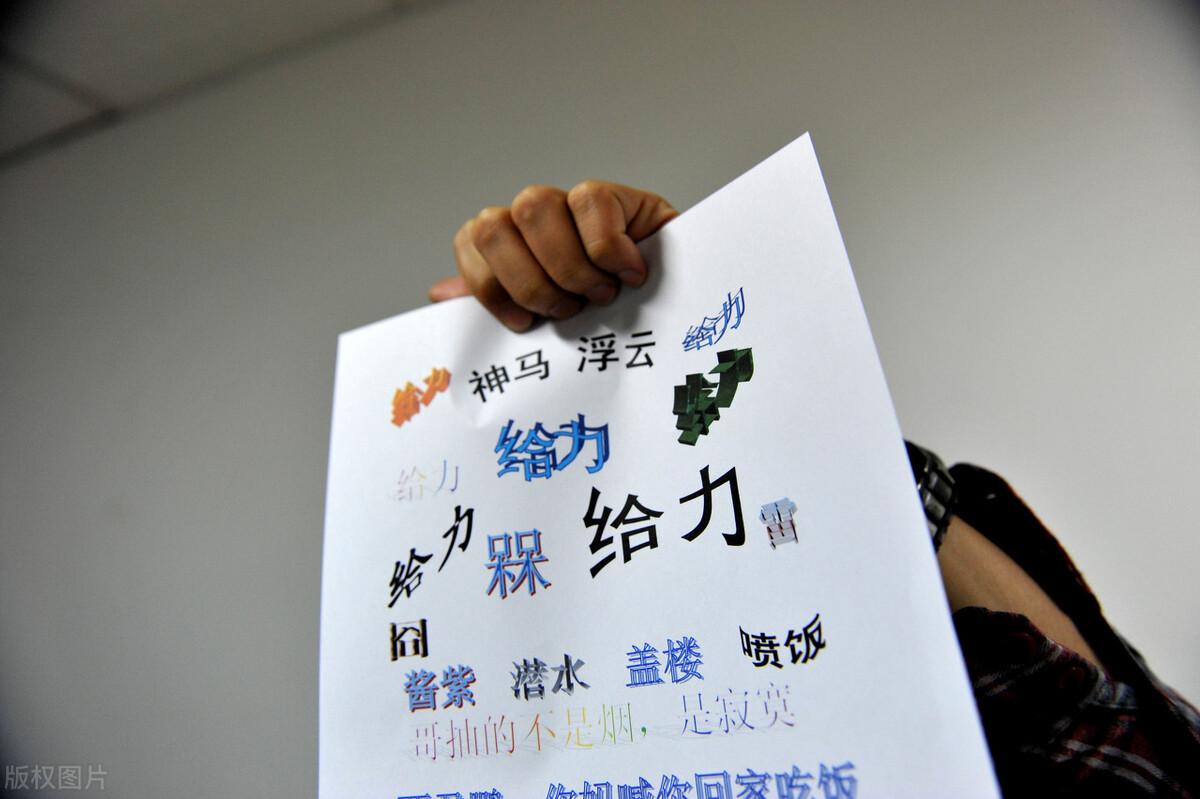 给力 神马 浮云 给力
给力
给力
给力 槑 给力
囧
酱紫 潜水 盖楼 喷饭
哥抽的不是烟，是寂寞
你妈喊你回家吃饭
版权图片